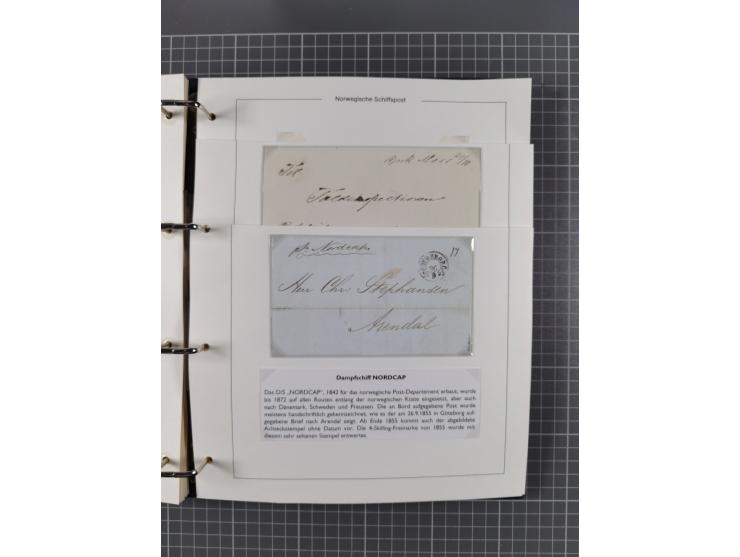 Norwegische Schiffspost
Til
pr Nordcap
17
Herr Chr. Stephansen
Arendal
Dampfschiff NORDCAP
Das D/S „NORDCAP“, 1842 für das norwegische Post-Departement erbaut, wurde
bis 1872 auf allen Routen entlang der norwegischen Küste eingesetzt, aber auch
nach Dänemark, Schweden und Preussen. Die an Bord aufgegebene Post wurde
meistens handschriftlich gekennzeichnet, wie es der am 26.9.1855 in Göteborg auf-
gegebene Brief nach Arendal zeigt. Ab Ende 1855 kommt auch der abgebildete
Achteckstempel ohne Datum vor. Die 4-Skilling-Freimarke von 1855 wurde mit
diesem sehr seltenen Stempel entwertet.